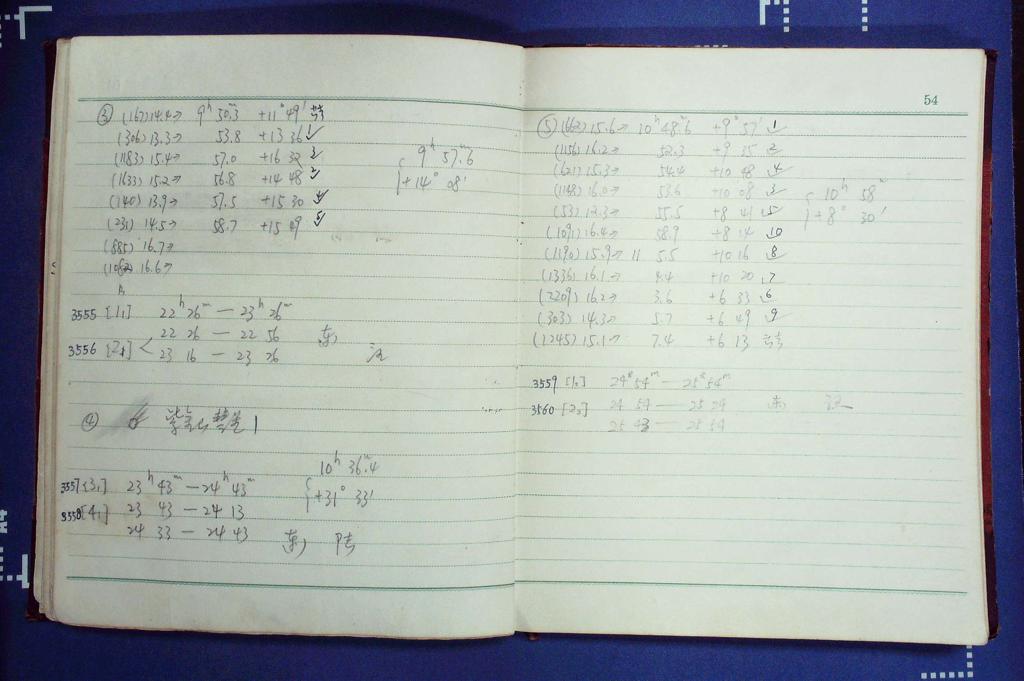 ③ (167) 14.4→ 9ʰ 50.3ᵐ +11° 49′
(306) 13.3→ 53.8 +13 36 1
(1183) 15.4→ 57.0 +16 32 3
(1633) 15.2→ 56.8 +14 48 2
(140) 13.9→ 57.5 +15 30 4
(231) 14.5→ 58.7 +15 09 5
(885) 16.7→
16.6→
9ʰ 57.6ᵐ
+14° 08′
3555 [1₁] 22ʰ 26ᵐ — 23ʰ 26ᵐ
22 26 — 22 56 东
3556 23 16 — 23 26 汪
④ 紫金山彗星1
10ʰ 36.4ᵐ
+31° 33′
3557 [3₁] 23ʰ 43ᵐ — 24ʰ 43ᵐ
3558 [4₁] 23 43 — 24 13
24 33 — 24 43 东
54
⑤ 15.6→ 10ʰ 48.6ᵐ +9° 57′ 1
(1156) 16.2→ 52.3 +9 35 2
(621) 15.3→ 54.4 +10 48 4
(1148) 16.0→ 53.6 +10 08 3
(53) 12.3→ 55.5 +8 41 5
(1091) 16.4→ 58.9 +8 14 10
(1190) 15.9→ 11 5.5 +10 16 8
(1336) 16.1→ 4.4 +10 20 7
(2209) 16.2→ 3.6 +6 33 6
(303) 14.3→ 5.7 +6 49 9
(1245) 15.1→ 7.4 +6 13
10ʰ 58ᵐ
+8° 30′
3559 24ʰ 54ᵐ — 25ʰ 54ᵐ
3560 24 54 — 25 24 东 汪
25 43 — 25 54